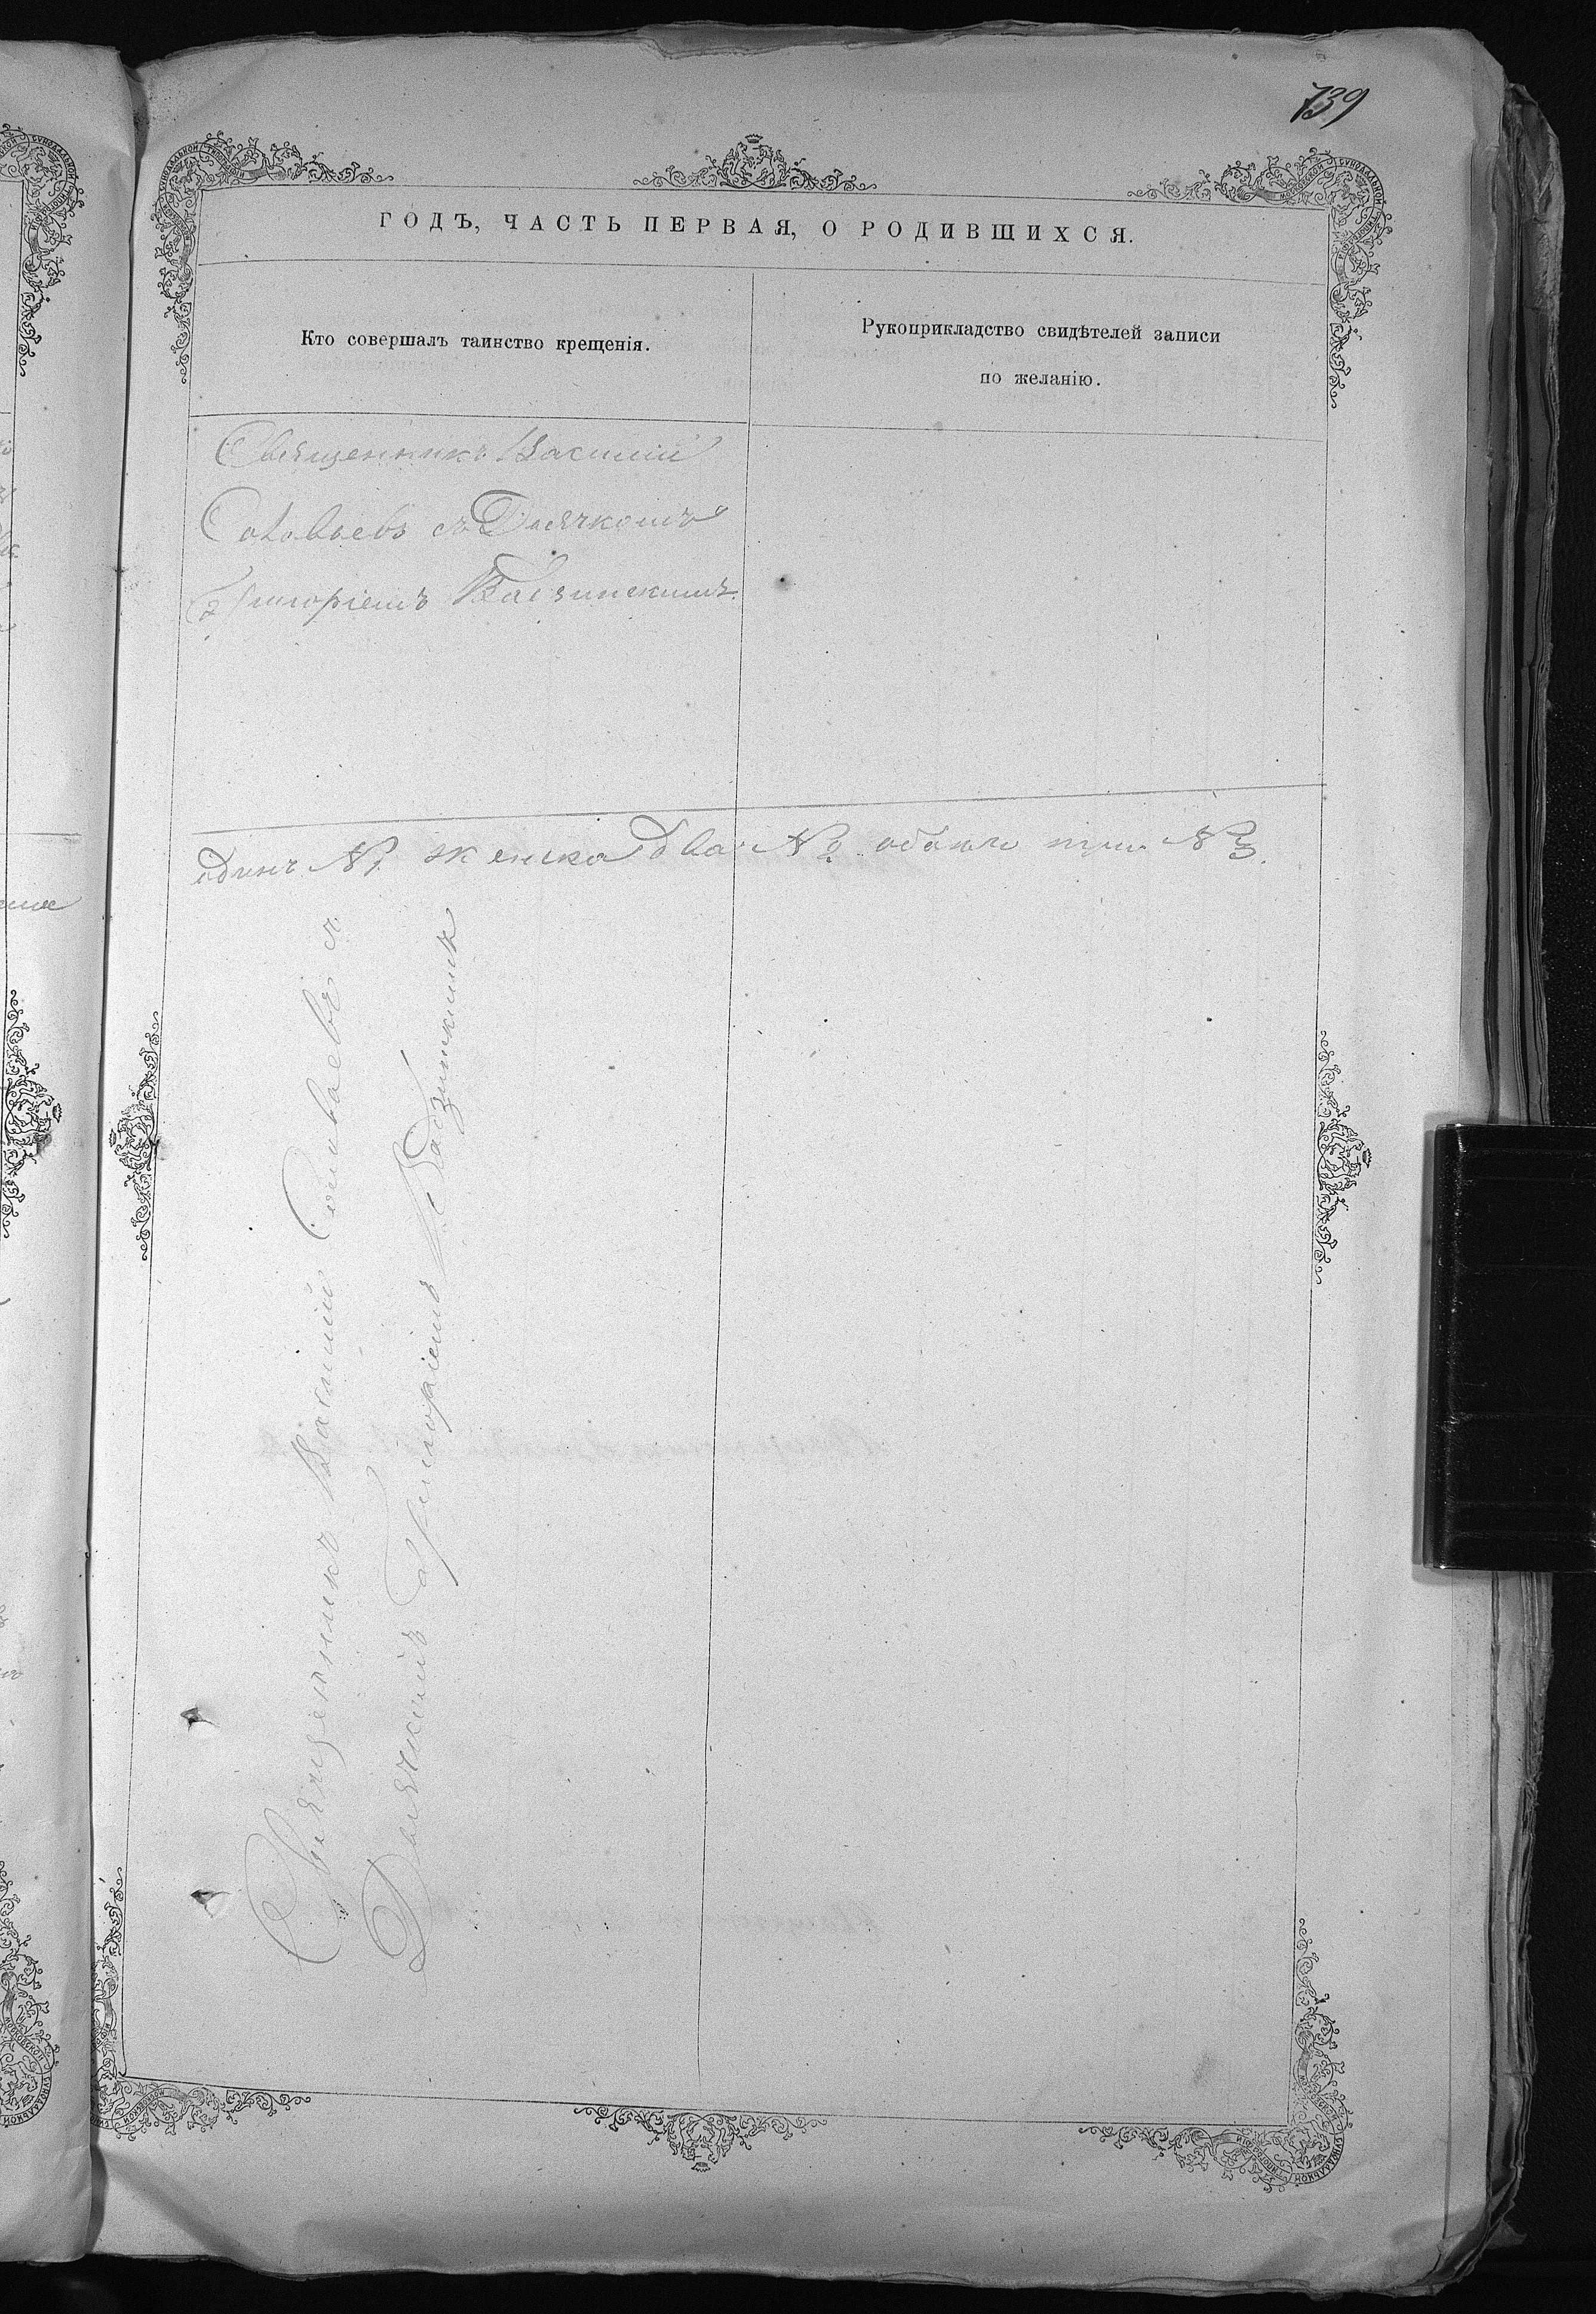 739
ГОДЪ, ЧАСТЬ ПЕРВАЯ, О РОДИВШИХСЯ.
Кто совершалъ таинство крещенія.
Рукоприкладство свидѣтелей записи
по желанію.
Священникъ Василій
Соловьевъ съ Дьячкомъ
Григоріемъ Казинскимъ.
одинъ №1. женска два №2 обоего три №3.
Священникъ Василій Соловьевъ съ
Дьячкомъ Григоріемъ Казинскимъ